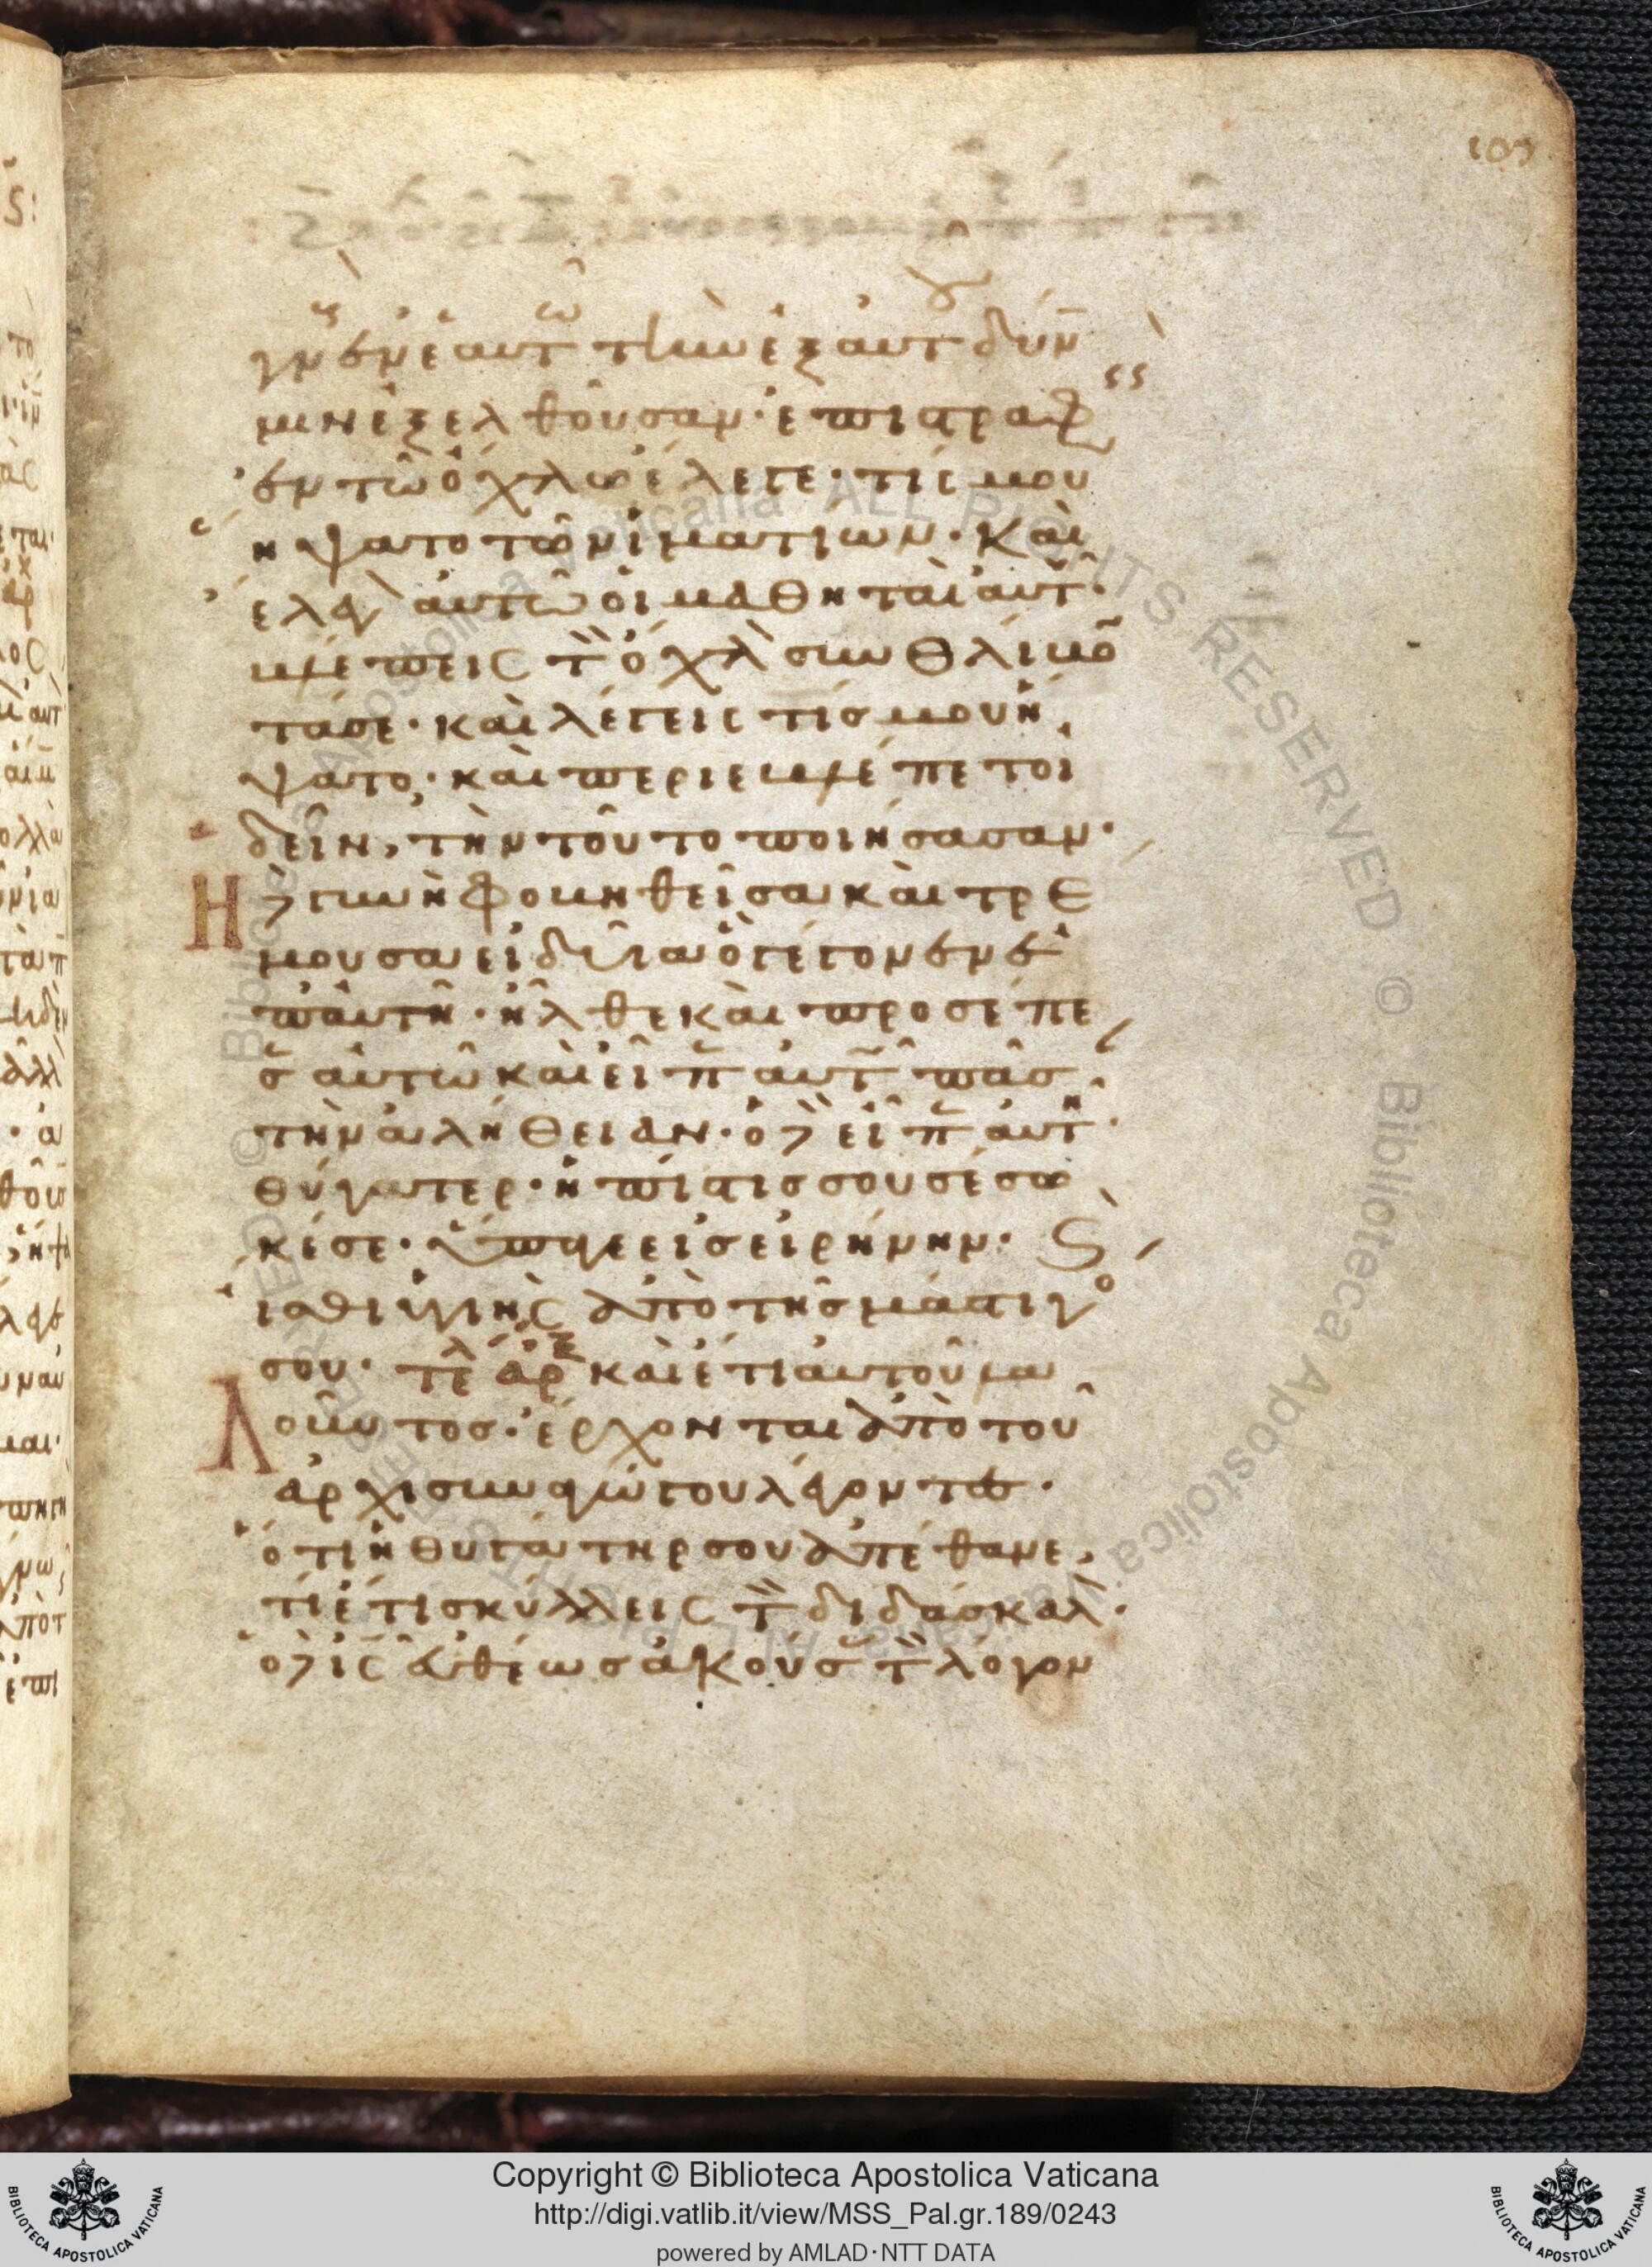 γν ἐν ἑαυτῶ τὴν ἐξ αὐτοῦ δύνα
μιν ἐξελθοῦσαν· ἐπιστραφεὶς
ἐν τῶ ὄχλω ἔλεγε· τίς μου
ἥψατο τῶν ἱματίων· καὶ
ἔλεγον αὐτῶ οἱ μαθηταὶ αὐτοῦ·
βλέπεις τὸν ὄχλον συνθλίβον
τά σε· καὶ λέγεις τίς μου ἥ
ψατο· καὶ περιεβλέπετο ἰ
δεῖν, τὴν τοῦτο ποιήσασαν·
Ἡ δὲ γυνὴ φοβηθεῖσα καὶ τρέ
μουσα εἰδυῖα ὃ γέγονεν ἐ
π' αὐτῆ· ἦλθε καὶ προσέπε
σεν αὐτῶ καὶ εἶπεν αὐτῶ πᾶσαν
τὴν ἀλήθειαν· ὁ δὲ εἶπεν αὐτῆ·
θύγατερ· ἡ πίστις σου σέσω
κέ σε· ὕπαγε εἰς εἰρήνην· καὶ
ἴσθι ὑγιὴς ἀπὸ τῆς μάστιγό
σου· τελ ἀρξ καὶ ἔτι αὐτοῦ λα
Λοῦντος· ἔρχονται ἀπὸ τοῦ
ἀρχισυναγώγου λέγοντες·
ὅτι ἡ θυγάτηρ σου ἀπέθανε,
τί ἔτι σκύλλεις τὸν διδάσκαλον·
ὁ δὲ ις εὐθέως ἀκούσας τὸν λόγον
Copyright © Biblioteca Apostolica Vaticana
http://digi.vatlib.it/view/MSS_Pal.gr.189/0243
powered by AMLAD·NTT DATA
BIBLIOTECA APOSTOLICA VATICANA
BIBLIOTECA APOSTOLICA VATICANA